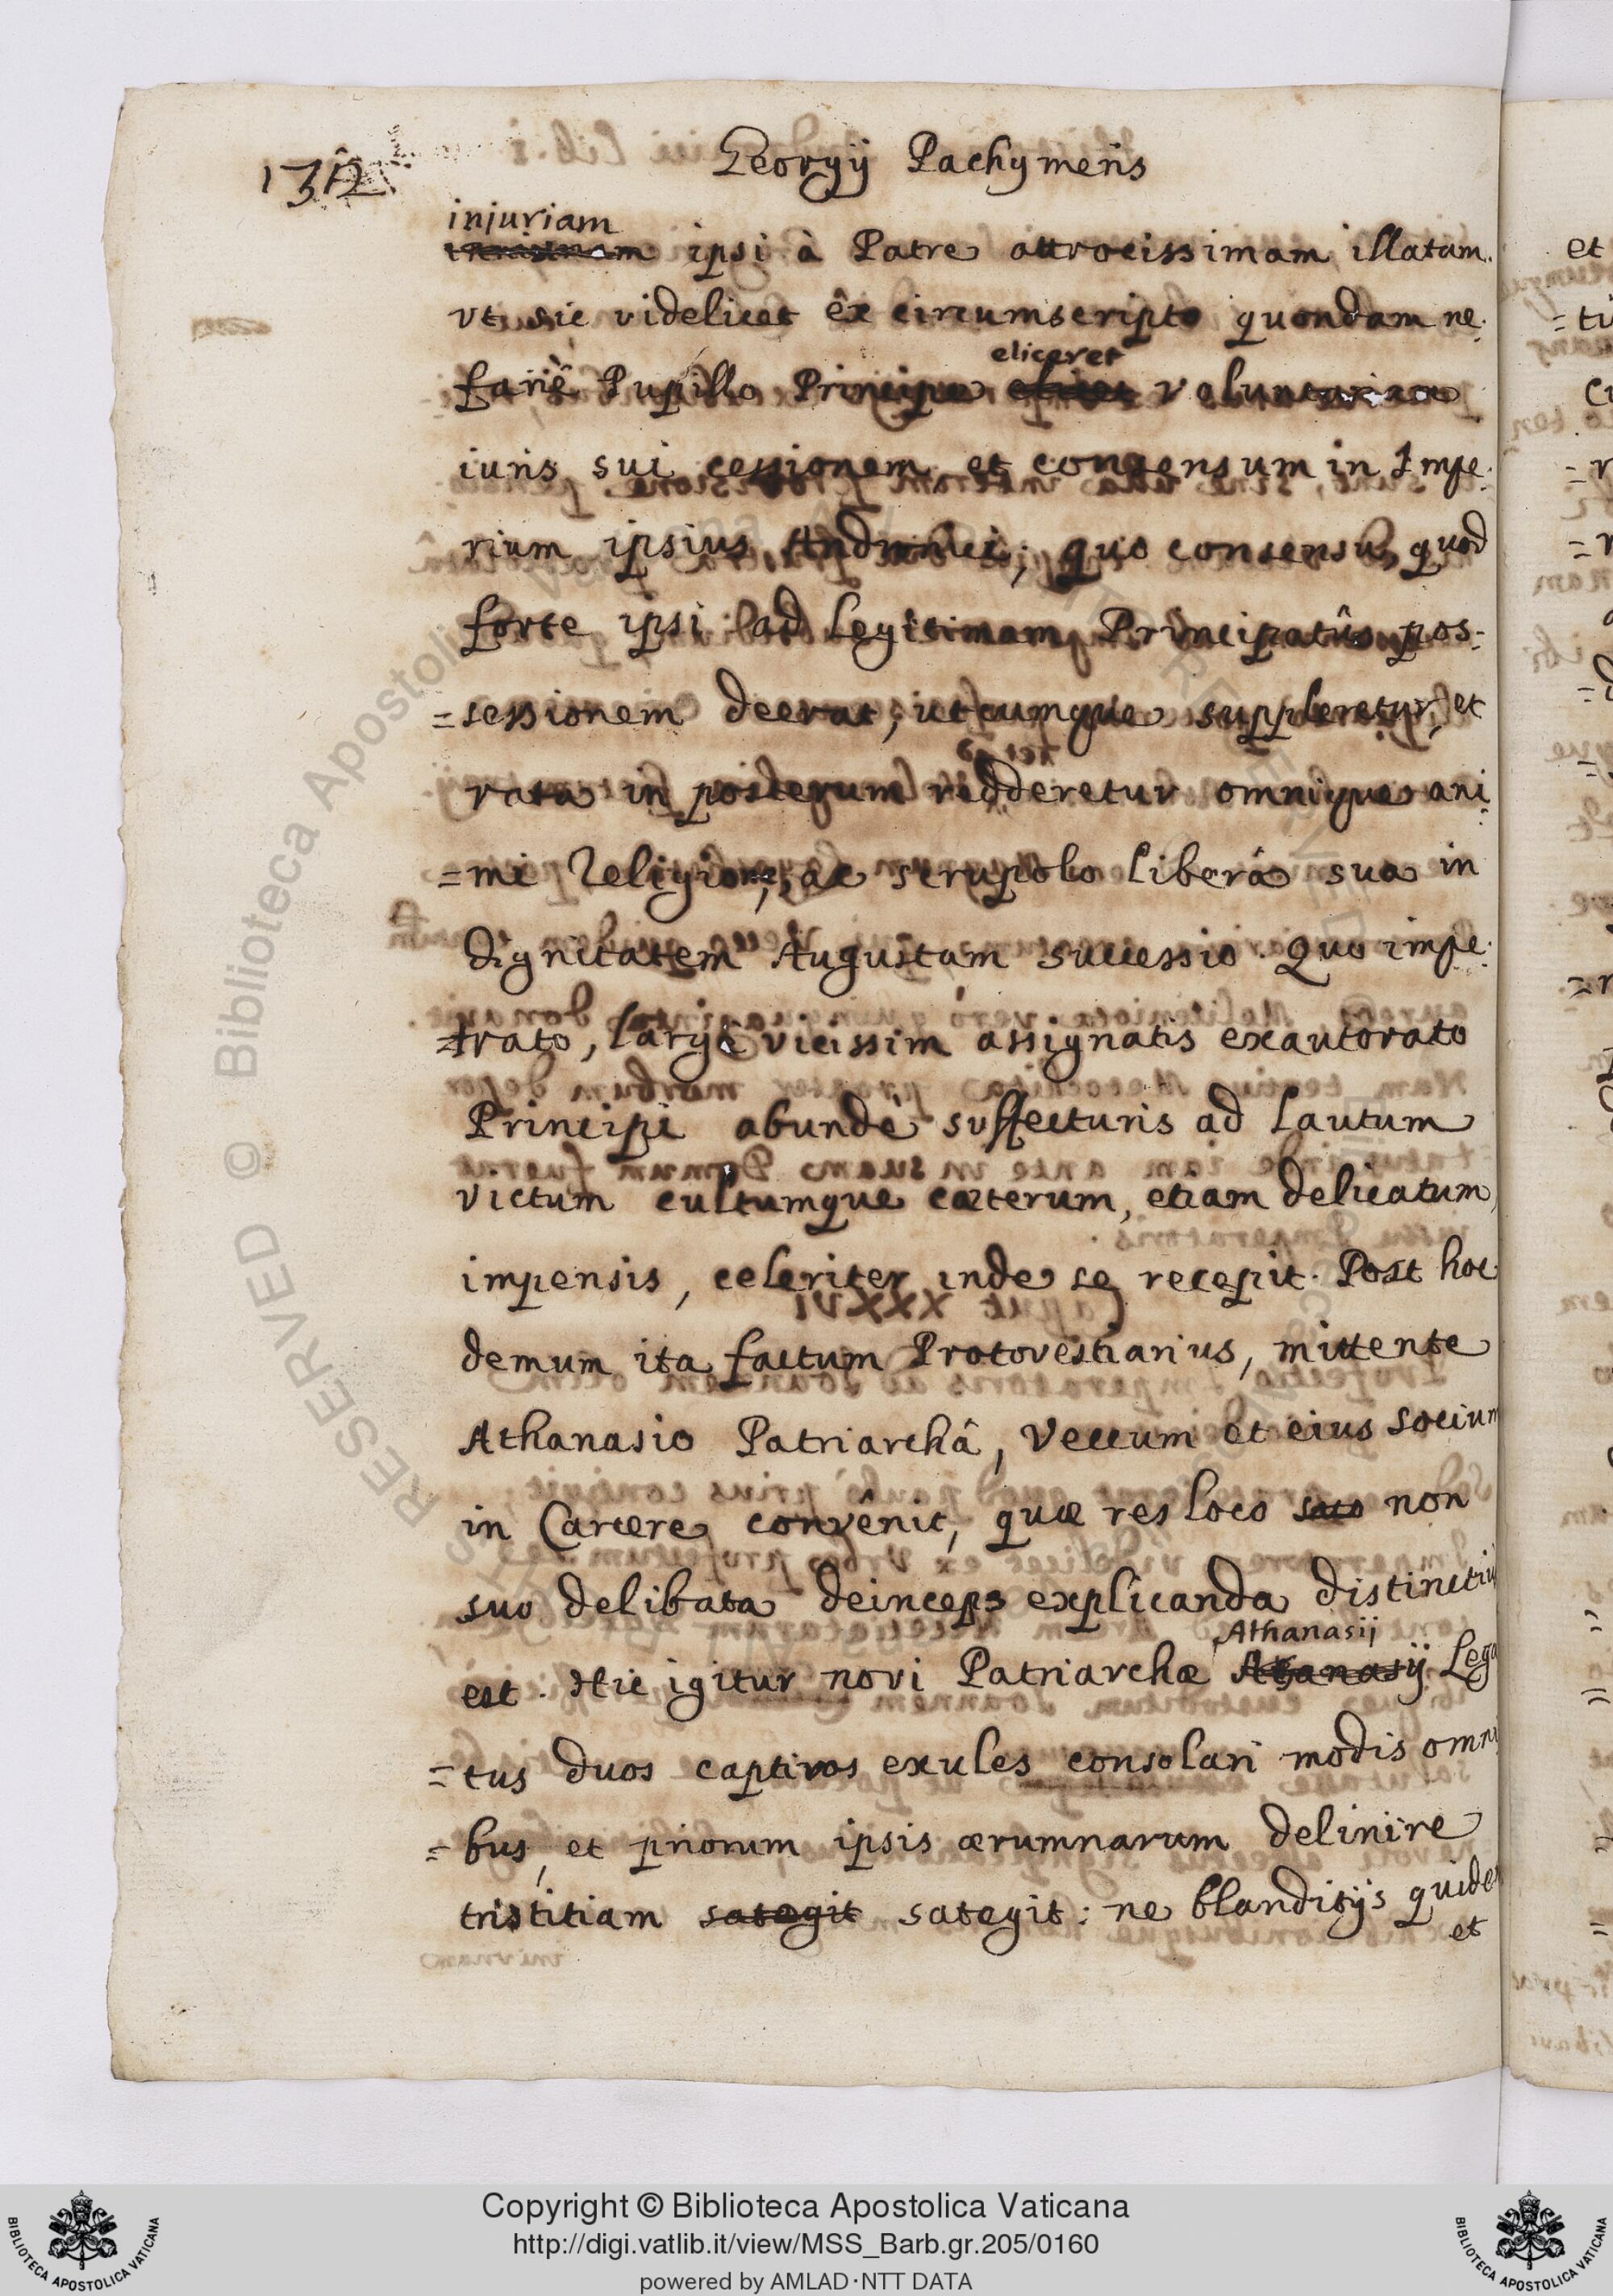 132
Georgÿ Pachymeris
injuriam
ipsi à Patre attrocissimam illatam.
vt sic videlicet êx circumscripto quondam ne-
eliceret
fariè Pupillo Principe elicet voluntariam
iuris sui cessionem et consensum in Impe-
rium ipsius Andronici; quo consensu, quod
forte ipsi ad Legitimam Principatûs pos-
=sessionem deerat, utcumque suppleretur, et
rata in posterum redderetur omnique ani-
=mi Religione, ac scrupolo liberâ sua in
dignitatem Augustam successio. Quo impe-
=trato, largè vicissim assignatis exautorato
Principi abundè suffecturis ad Lautum
victum cultumque cæterum, etiam delicatum,
impensis, celeriter inde se recepit. Post hoc
demum ita factum Protovestiarius, mittente
Athanasio Patriarchâ, Veccum et eius socium
in Carcere convênit, quæ res loco suo non
suo delibata deinceps explicanda distinctiu
est. Hic igitur novi Patriarchæ Athanasij
Atanasÿ Lega
=tus duos captivos exules consolari modis omni
=bus, et priorum ipsis ærumnarum delinire
tristitiam sategit sategit: ne blanditÿs quidem
et
Copyright © Biblioteca Apostolica Vaticana
http://digi.vatlib.it/view/MSS_Barb.gr.205/0160
powered by AMLAD·NTT DATA
BIBLIOTECA APOSTOLICA VATICANA
BIBLIOTECA APOSTOLICA VATICANA